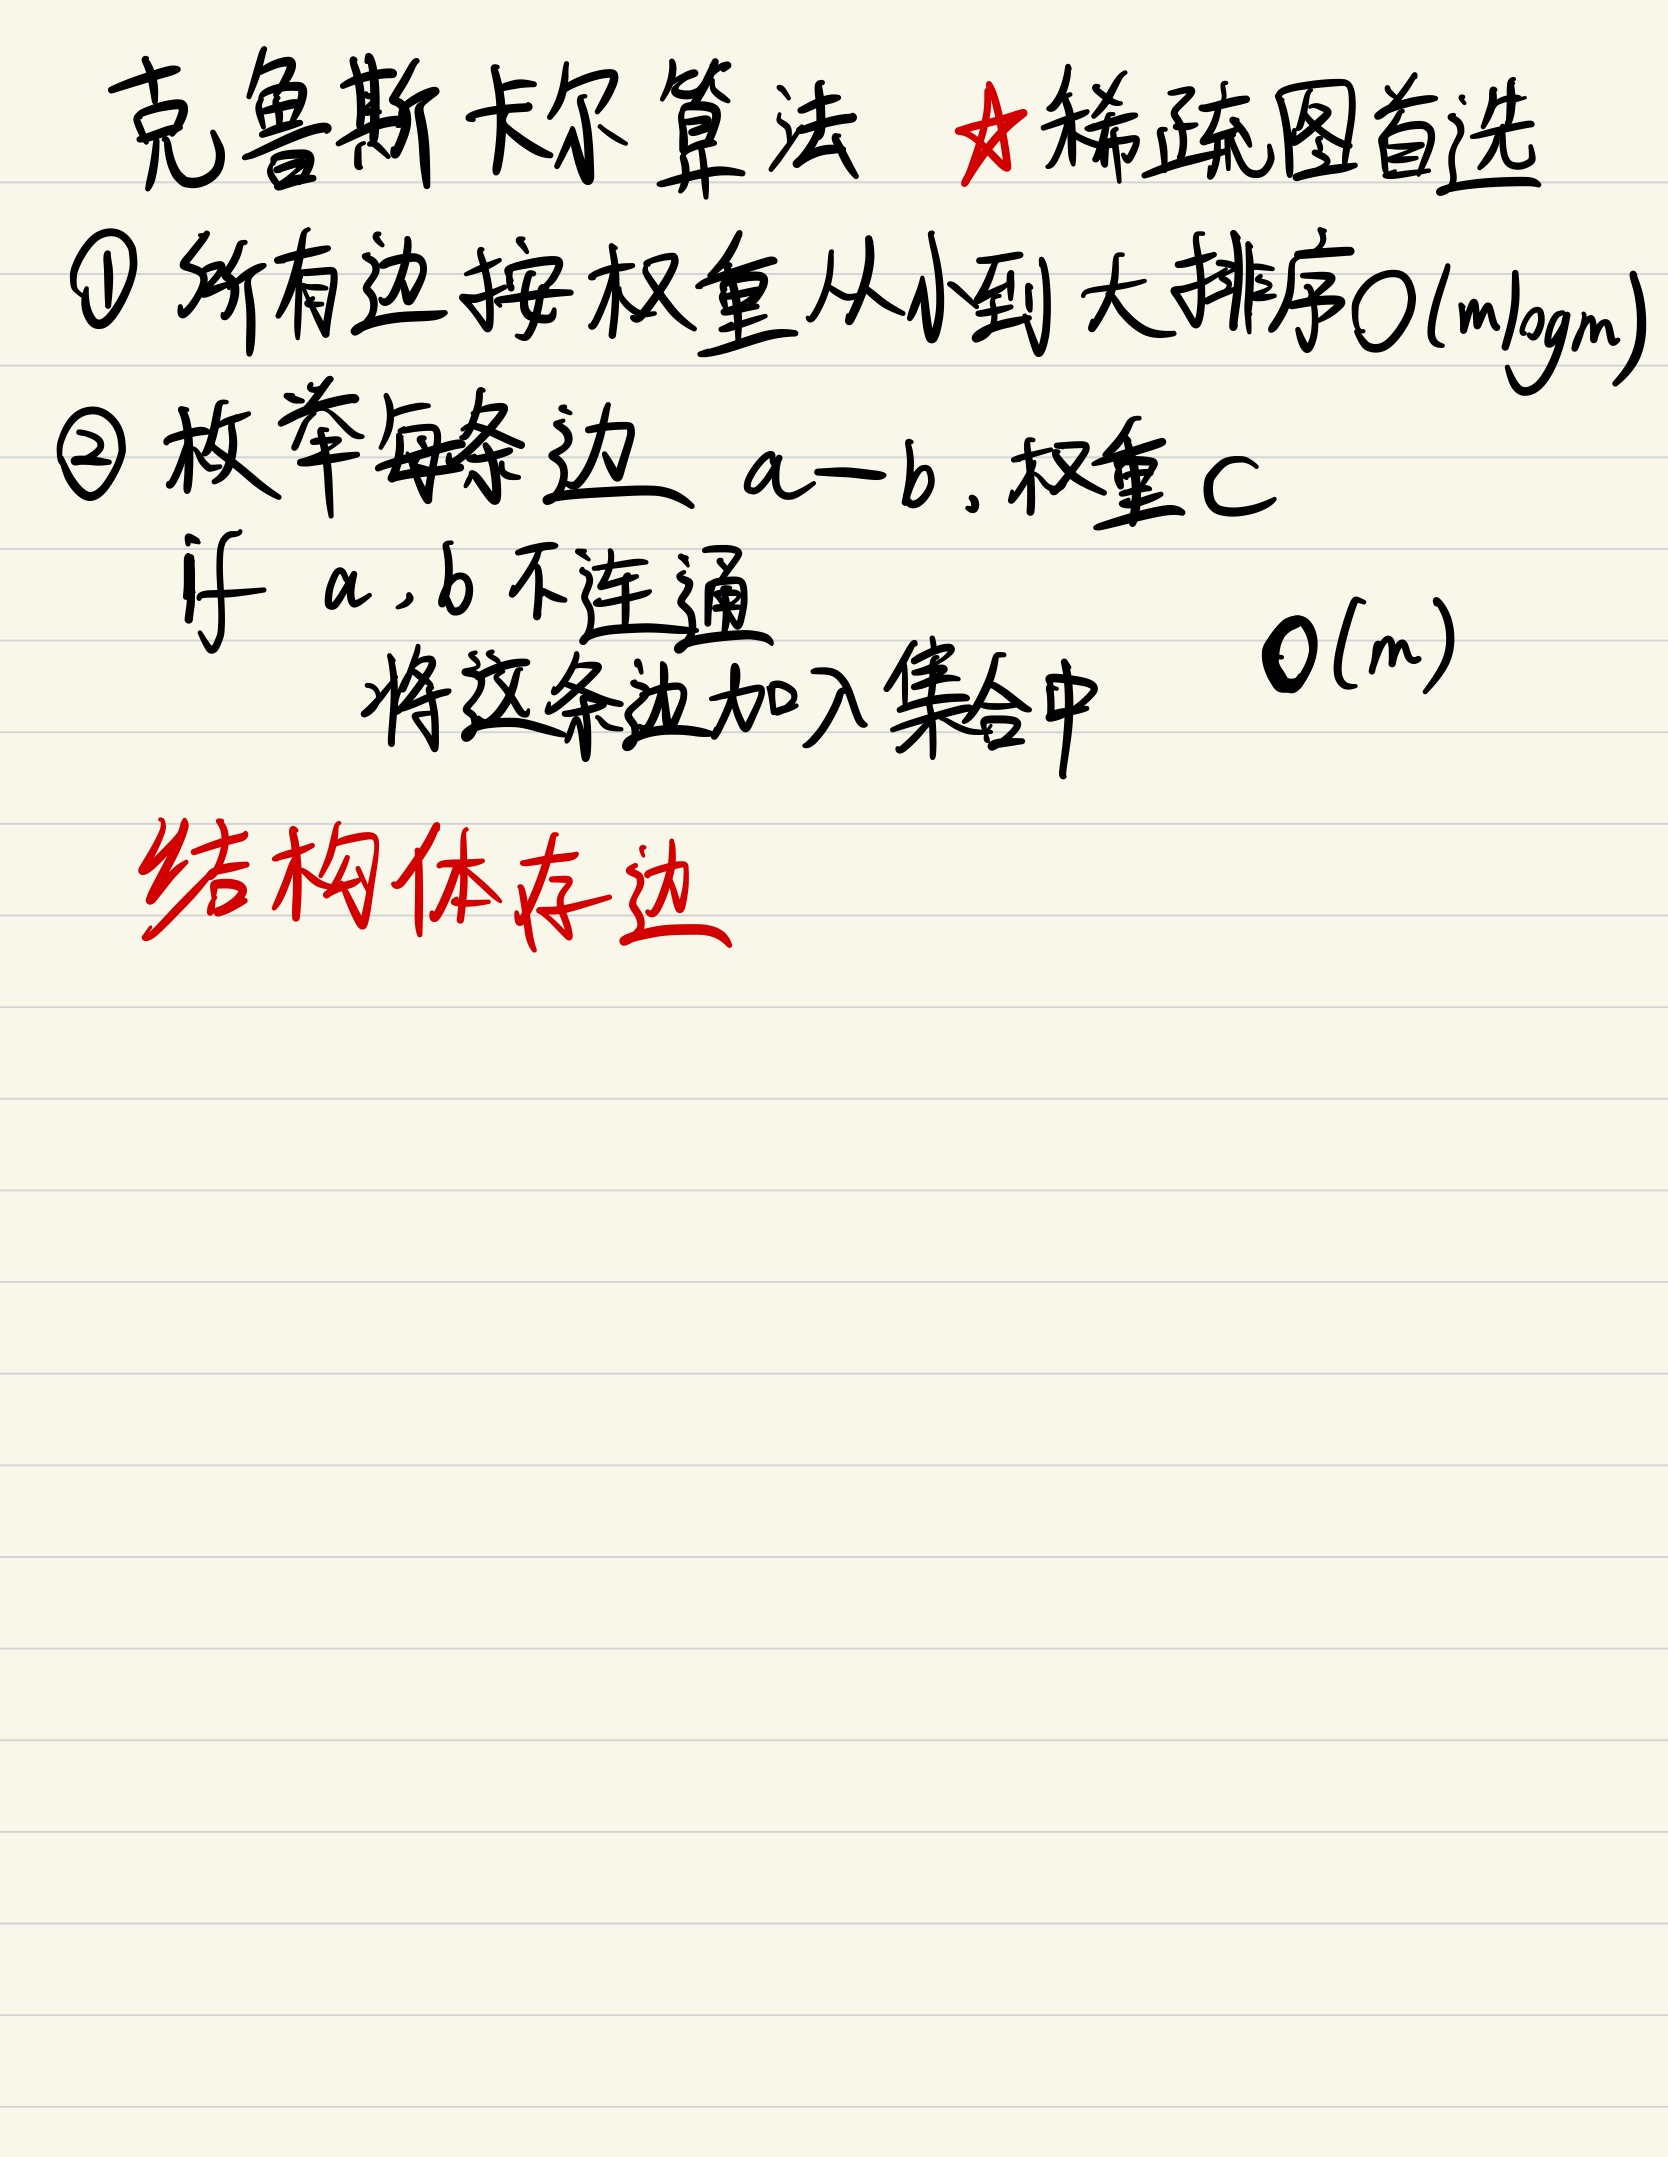 克鲁斯卡尔算法 ☆稀疏图首选
① 所有边按权重从小到大排序O(mlogm)
② 枚举每条边 a-b,权重c
if a,b不连通
O(m)
将这条边加入集合中
结构体存边